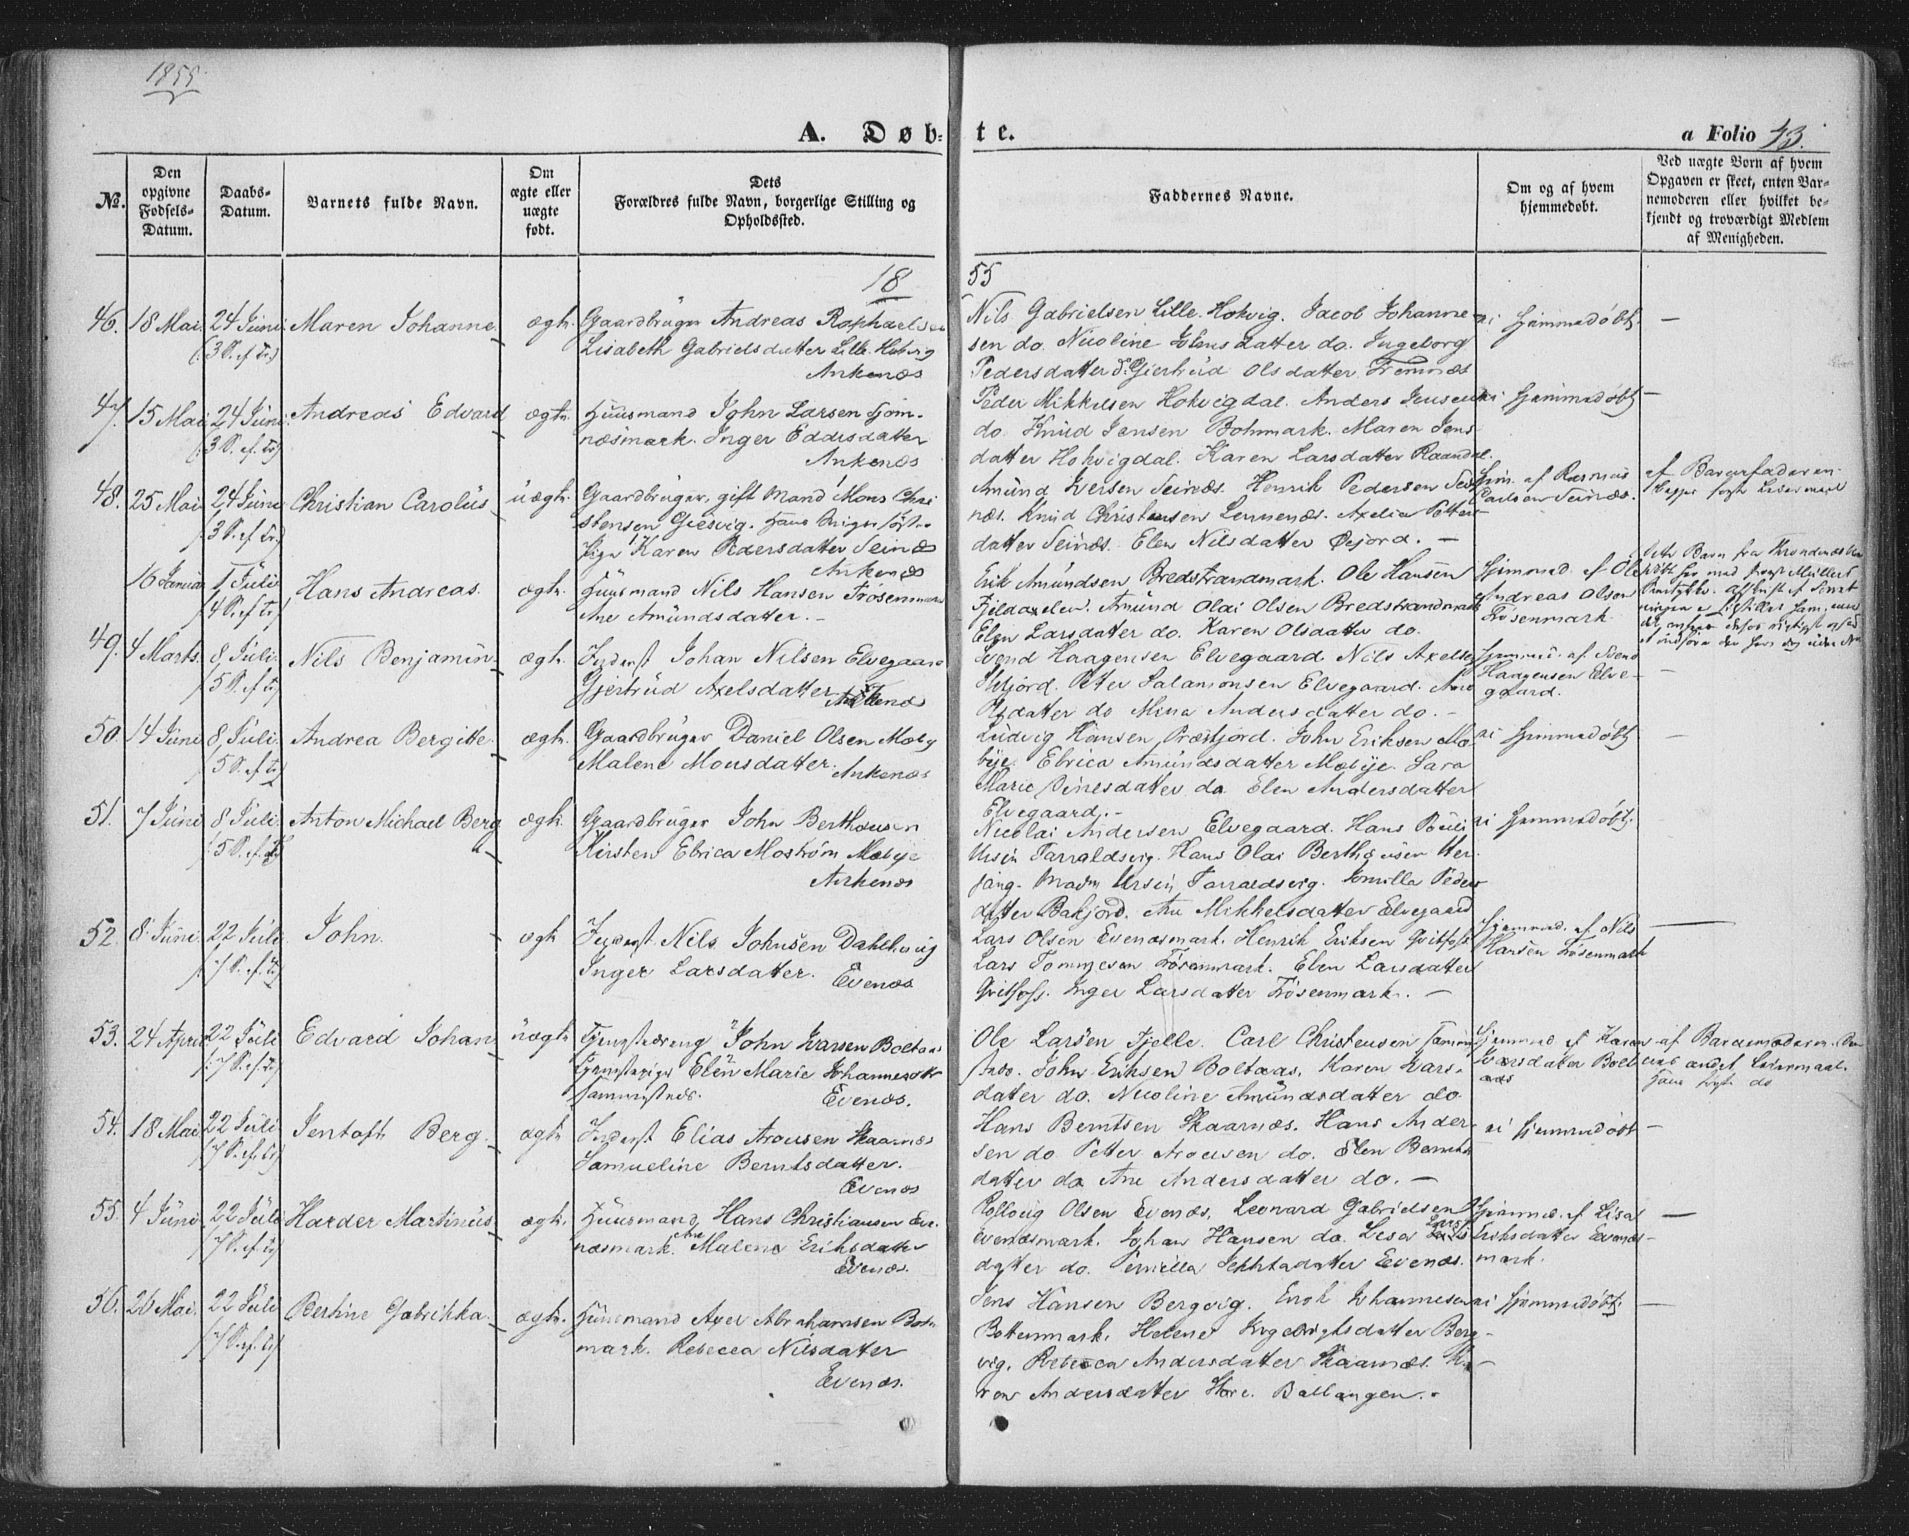 1855
A. Døb=
te.
a Folio 43.
No.
Den opgivne Fødsels-Datum.
Daabs-Datum.
Barnets fulde Navn.
Om ægte eller uægte født.
Dets Forældres fulde Navn, borgerlige Stilling og Opholdssted.
Faddernes Navne.
Om og af hvem hjemmedøbt.
Ved uægte Børn af hvem Opgaven er skeet, enten Barnemoderen eller hvilket bekjendt og troværdigt Medlem af Menigheden.
18
55
46. 18 Mai 24 Juni Maren Johanne ægte. Gaardbruger Andreas Raphaelsen
(3 S. ef Tr) Lisabeth Gabrielsdatter Lille Hokvig
Ankenæs
Nils Gabrielsen Lille Hokvig. Jacob Johanne-
sen do. Nicoline Johnsdatter do. Ingeborg
Pedersdatter do. Gjertrud Olsdatter
ei Hjemmedøbt. —
47. 15 Mai 24 Juni Andreas Edvard ægte. Huusmand John Larsen
(3 S. ef Tr) næsmark. Inger Eddisdatter
Ankenæs
Peder Mikkelsen Hokvigdal. Anders Jensen
do. Knud Jensen Bohmark. Maren Jens
datter Hokvigdal. Karen Larsdatter
ei Hjemmedøbt —
48. 25 Mai 24 Juni Christian Carolus uægte. Gaardbruger, gift Mand Mons Chri
(3 S. ef Tr) stensen Giesvig.
Pige Karen Pedersdatter Seines
Ankenæs
Amund Iversen Seinæs. Henrik Pedersen Sei
næs. Knud Christensen Lennenæs. Axelia Petter
datter Seinæs. Elen Nilsdatter Øejord. —
Hjem. af Rasmus
Paulsen Seinæs.
af Barnefaderen
16 Januar 1 Juli Hans Andreas. ægte. Huusmand Nils Hansen Trøsenmark
(4 S. ef Tr) Ane Amundsdatter. —
Erik Amundsen Bredstrandmark. Ole Hansen
Fjeldaxelen. Amund Olai Olsen Bredstrandmark
Elen Larsdatter do. Karen Olsdatter do.
Hjemmed. af Ole
Andreas Olsen
Trøsenmark.
49. 4 Marts. 8 Juli. Nils Benjamin ægte. Inderst Johan Nilsen Elvegaard
(5 S. ef Tr) Gjertrud Axelsdatter
Ankenæs
Svend Haagensen Elvegaard. Nils Axelsen
Peter Salamonsen Elvegaard. Ane
Olsdatter do Mina Andersdatter do. —
Hjemmed. af Svend
Haagensen Elve-
gaard. —
50 14 Juni 8 Juli. Andrea Bergitte ægte. Gaardbruger Daniel Olsen Moby
(5 S. ef Tr) Malene Monsdatter. Ankenæs
Ludvig Hansen Præstjord. John Eriksen Mo
bye. Ebrica Amundsdatter Mobye. Sara
Marie datter do Elen Andersdatter
Elvegaard. —
ei Hjemmedøbt —
51. 7 Juni 8 Juli. Anton Michael Berg ægte. Gaardbruger John Berthousen
(5 S. ef Tr) Kirsten Ebrica Moström Mobye
Ankenæs
Nicolai Andersen Elvegaard. Hans Pouli
Ursin Tarraldsvig. Hans Olai Berthousen Her-
jang. Mad. Ursin Tarraldsvig. Pernilla Peders
datter Bakjord. Ane Mikkelsdatter Elvegaard
ei Hjemmedøbt.
52. 8 Juni 22 Juli John. ægte Inderst Nils Johnsen Dahlhaug
(7 S. ef Tr) Inger Larsdatter. Evenæs
Lars Olsen Evenæsmark. Henrik Eriksen Qvitfoss
Lars Tommesen Trøsenmark. Elen Larsdatter
Qvitfoss. Inger Larsdatter Trøsenmark. —
Hjemmed. af Nils
Hansen Trøsenmark —
53. 24 April 22 Juli Edvard Johan uægte Tjenestedreng John Larsen Boltaas
(7 S. ef Tr) Tjenestepige Elen Marie Johannesdtr
Evenæs.
Ole Larsen Fjelle. Carl Christensen
John Eriksen Boltaas. Karen Lars-
datter do. Nicoline Amundsdatter do
Hjemmed af Karen
Larsdatter Bolt
aas
af Barnemoderen.
andet Leiermaal.
54. 18 Mai 22 Juli Jentoft Berg ægte Inderst Elias Arousen Skaarnæs
(7 S. ef Tr) Samueline Berntsdatter.
Evenæs
Hans Berntsen Skaarnæs. Hans Ander-
sen do Petter Arousen do. Elen Bernts
datter do Ane Andersdatter do. —
ei Hjemmedøbt —
55. 4 Juni 22 Juli Harder Martinus ægte. Huusmand Hans Christiansen Eve-
(7 S. ef Tr) næsmark. Ane Malene Eriksdatter
Evenæs.
Rollovig Olsen Evenæs. Leonard Gabrielsen
Evenæsmark. Johan Hansen do. Lisa Lars
datter do. Pernilla datter Evenæs.
Hjemmed. af Lisa
Eriksdatter Evenæs-
mark. —
56. 26 Mai. 22 Juli Bertine Gabrikka ægte. Huusmand Axel Abrahamsen Botn
(7 S. ef Tr) mark. Rebecca Nilsdatter
Evenæs.
Jens Hansen Bergvig. Enok Johannesen
Bottenmark. Helene Ingebrigtsdatter Berg-
vig. Rebecca Andersdatter Skaarnæs. Ka-
ren Andersdatter Ballangen.
ei Hjemmedøbt. —